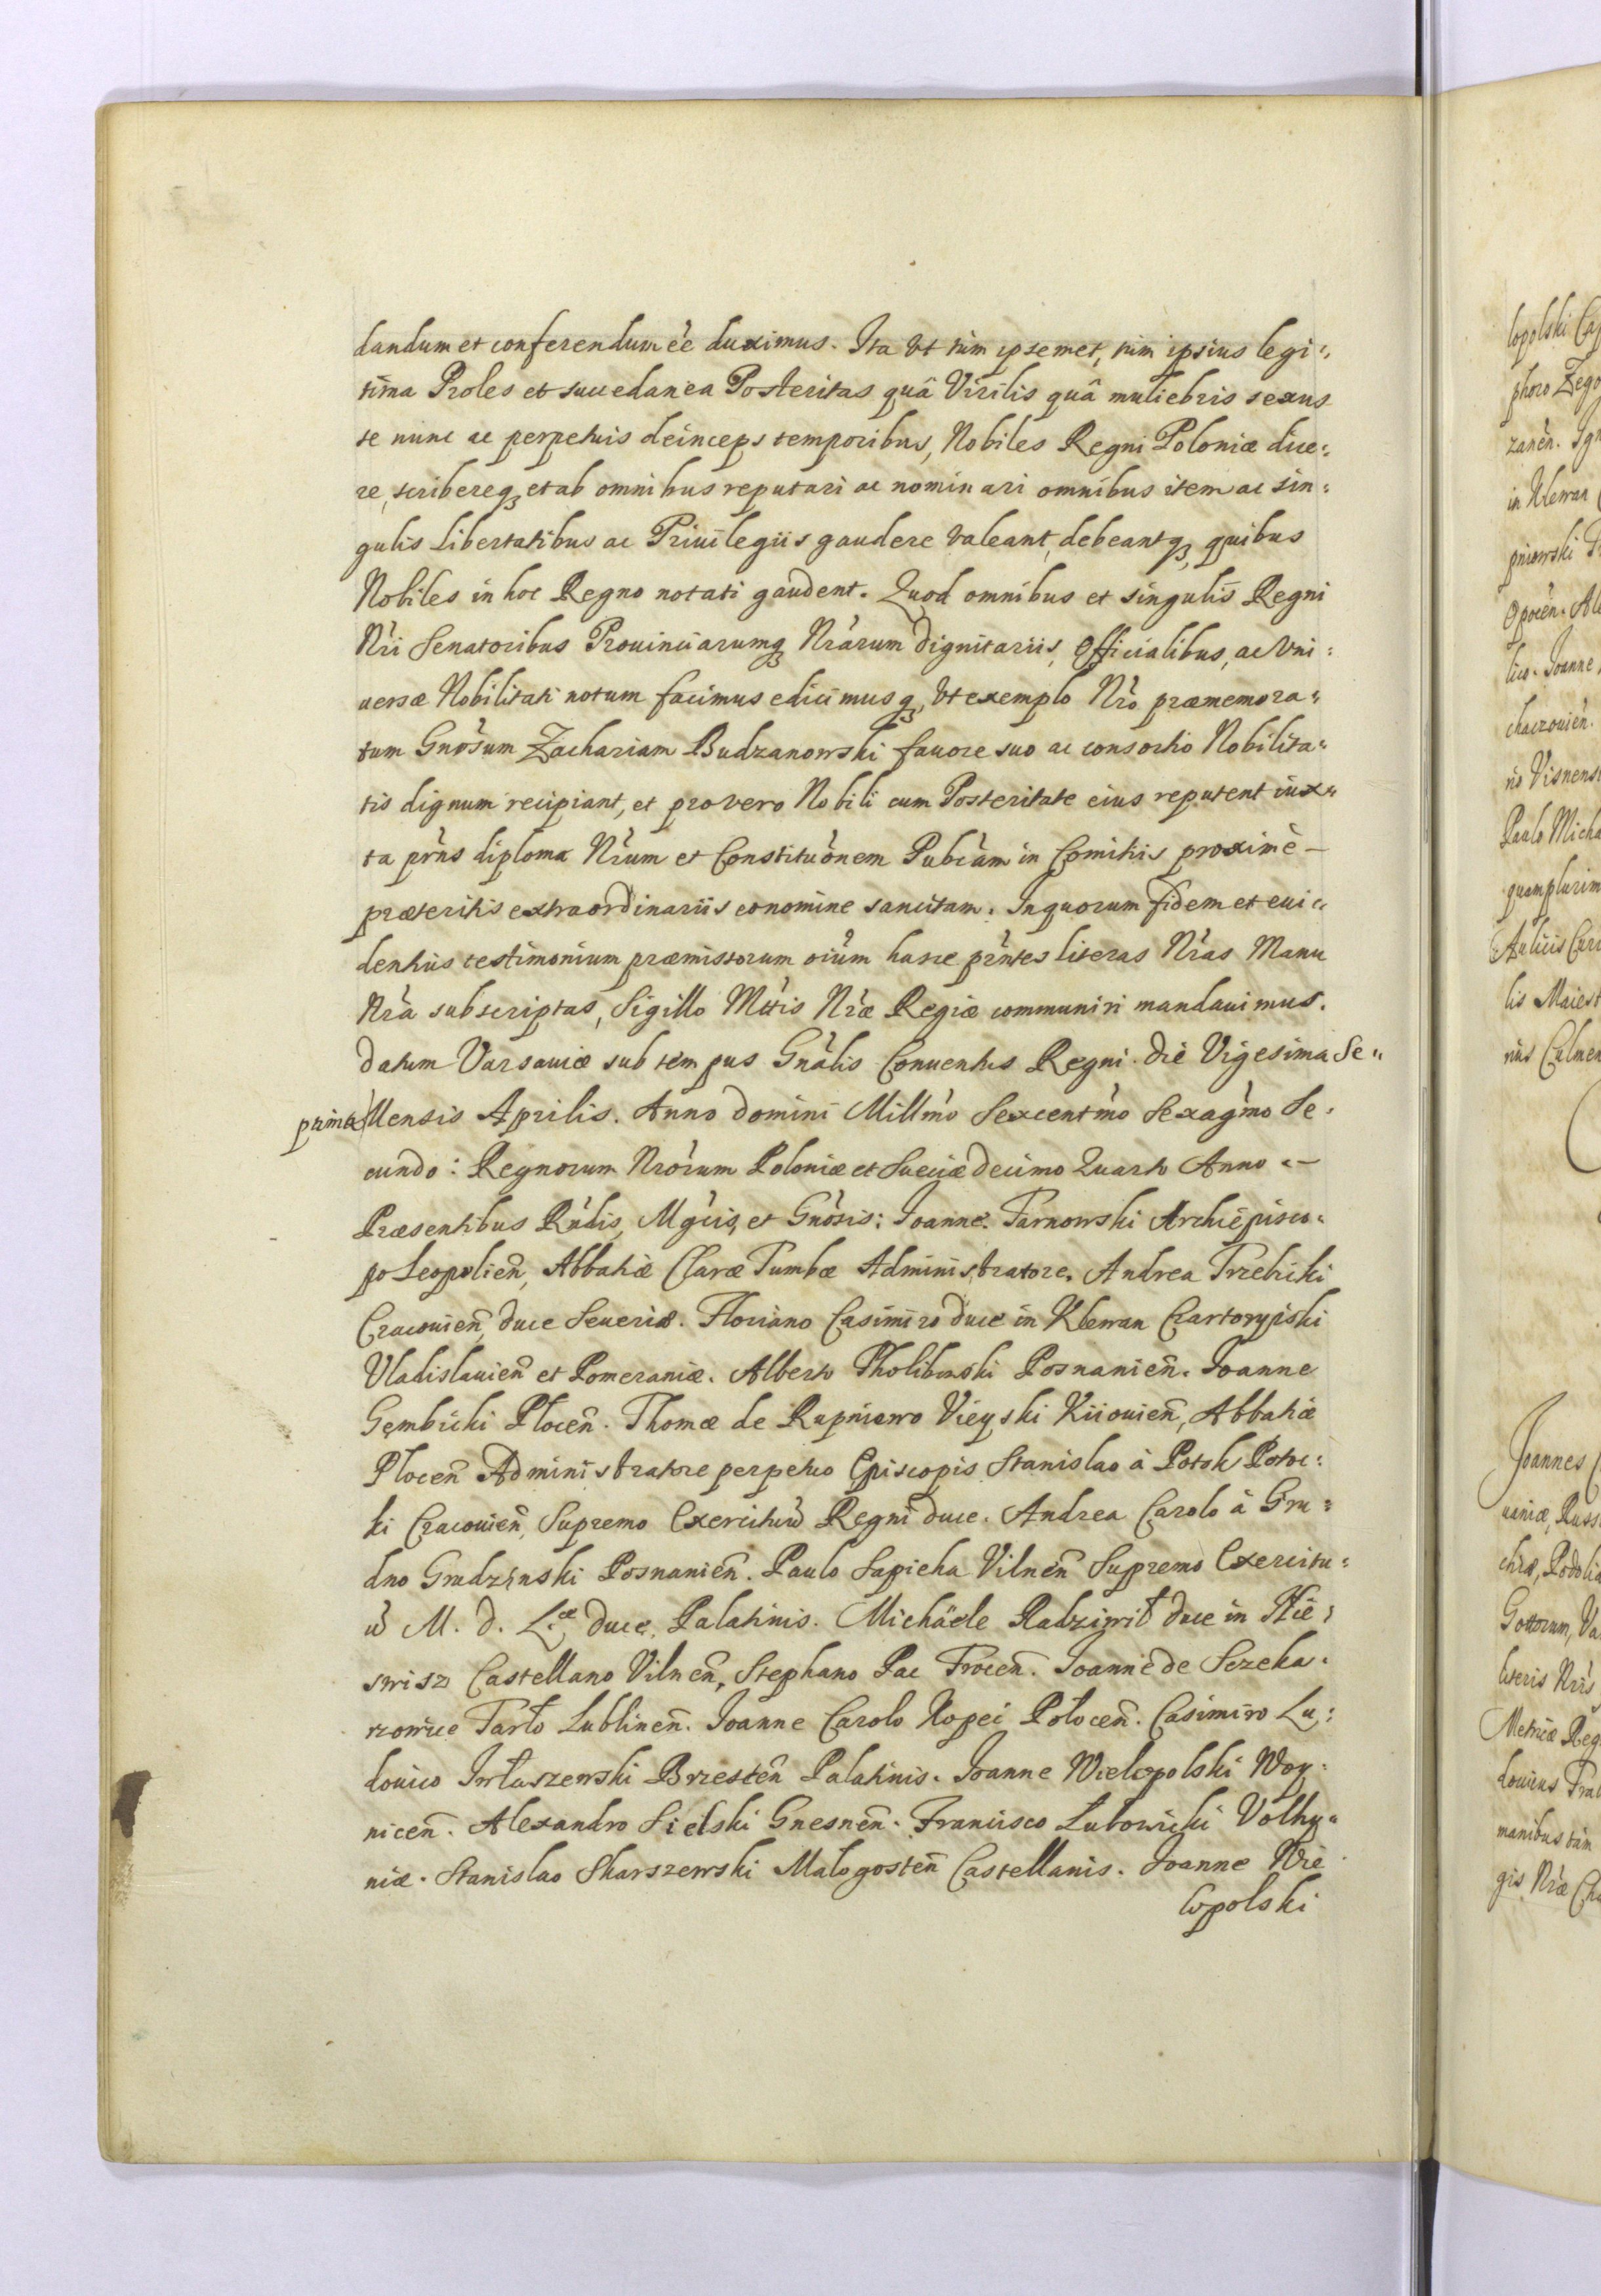 dandum et conferendum ẻẻ duximus. Ita Vt tùm ipsemet, tùm ipsius legi:
tima Proles et succedanea Posteritas quâ Virilis quâ muliebris sexus
se nunc ac perpetuis deinceps temporibus, Nobiles Regni Poloniæ dice:
re, scribereq, et ab omnibus reputari ac nominari omnibus item ac sin:
gulis Libertatibus ac Priuilegiis gaudere Valeant, debeantq, quibus
Nobiles in hoc Regno notati gaudent. Quod omnibus et singulis Regni
Nri Senatoribus Prouinciarumq Nrarum dignitariis, Officialibus, ac Vni:
uersæ Nobilitati notum facimus edicimusq, Vt exemplo Nro præmemora:
tum Gnosum Zachariam Budzanowski fauore suo ac consortio Nobilita:
tis dignum recipiant, et pro vero Nobili cum Posteritate eius reputent iux:
ta prns diploma Nrum et Constituonem Pubcam in Comitiis proximè –
præteritis extraordinariis eo nomine sancitam. In quorum fidem et eui:
dentius testimonium præmissorum oium hasce prntes literas Nras Manu
Nra subscriptas, Sigillo Mttis Nræ Regiæ communiri mandauimus.
Datum Varsauiæ sub tempus Gnalis Conuentus Regni. die Vigesima Se:
prima Mensis Aprilis. Anno Domini Millmo Sexcentmo Sexagmo Se:
cundo: Regnorum Nrorum Poloniæ et Sueciæ decimo Quarto Anno. –
Præsentibus Rndis, Mgcis, et Gnosis: Ioanne Tarnowski Archiepisco:
po Leopolien, Abbatiæ Claræ Tumbæ Administratore. Andrea Trzebicki
Cracouien, duce Seueriæ. Floriano Casimiro duce in Klewan Czartoryiski
Vladislauien et Pomeraniæ. Alberto Tholibowski Posnanien. Ioanne
Gembicki Plocen. Thomæ de Rupniewo Vieyski Kiiouien, Abbatiæ
Plocen Administratore perpetuo Episcopis. Stanislao à Potok Potoc:
ki Cracouien, Supremo Exercituũ Regni duce. Andrea Carolo à Gru:
dno Grudzinski Posnanien. Paulo Sapieha Vilnen Supremo Exercitu:
ũ M. D. L.æ duce, Palatinis. Michaele Radziwił duce in Nie:
swisz Castellano Vilnen, Stephano Pac Trocen. Ioanne de Sczeka:
rzowice Tarło Lublinen. Ioanne Carolo Kopeć Połocen. Casimiro Lu:
douico Iwłaszewski Brzesten Palatinis. Ioanne Wielopolski Woy:
nicen. Alexandro Sielski Gnesnen. Francisco Lubowicki Volhy:
niæ. Stanislao Skarszewski Małogosten Castellanis. Ioanne Wie
lopolski